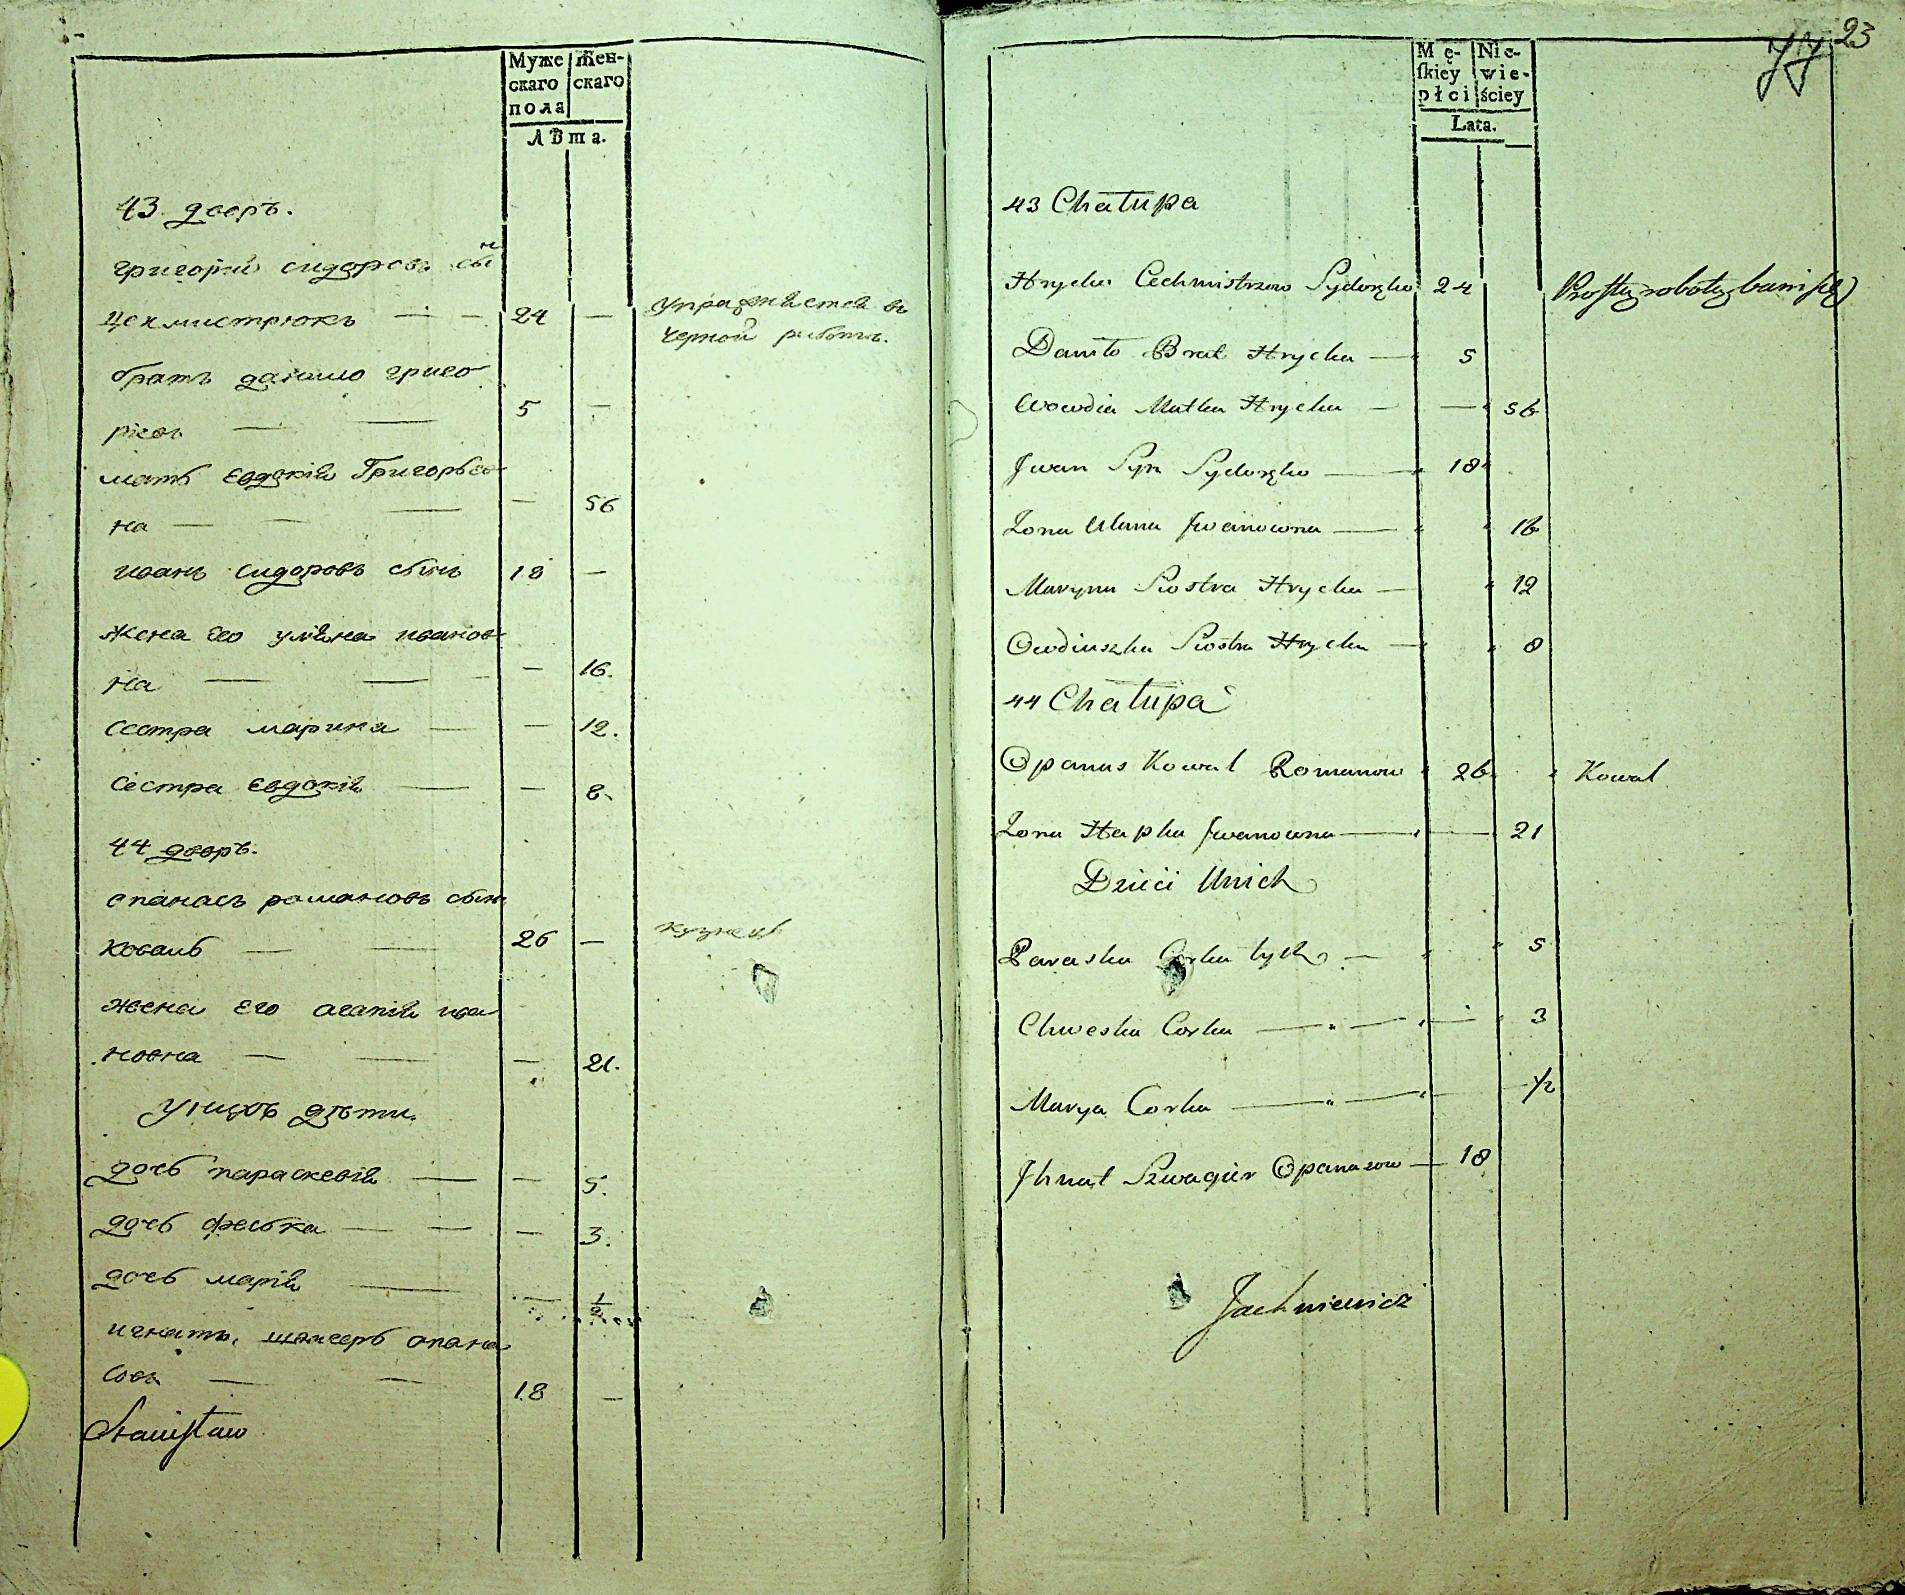 Муже
скаго
пола
Жен-
скаго
ЛѢта.
43 дворъ.
григорій сидоровъ сынъ
цехмистрюкъ — — 24 — упражняется въ
черной работѣ.
братъ данило григо
ріевъ — — 5 —
мать Евдокія Григорьев
на — — — — 56
иванъ сидоровъ сынъ 18 —
жена его уляна иванов
на — — — 16.
сестра марина — — 12.
сестра Евдокія — — 8.
44 дворъ.
опанасъ романовъ сынъ
коваль — — 26 — кузнецъ
жена его агапія ива
новна — — — 21.
у нихъ дѣти.
дочь параскевія — — 5.
дочь феська — — — 3.
дочь марія — — 1/2
игнатъ, шваgеръ опана
совъ — — 18 —
Stanisław
23
Mę-
skiey
płci
Nie-
wie-
ściey
Lata.
43 Chałupa
Hrycko Cechmistrzow Sydorzko 24 Prostą robotą bawi się
Daniło Brat Hrycka — 5
Owwdia Matka Hrycka — — 56
Jwan Syn Sydorzko — 18
Zona Ulana Jwanowna — 16
Maryna Siostra Hrycka — 12
Owdiuszka Siostra Hrycka — 8
44 Chałupa
Opanas Kowal Romanow 26 Kowal
Zona Hapka Jwanowna — — 21
Dzieci Unich
Paraska Corka tych — 5
Chweska Corka — — — 3
Marya Corka — — 1/2
Jhnat Szwagier Opanasow — 18
Jachniewicz